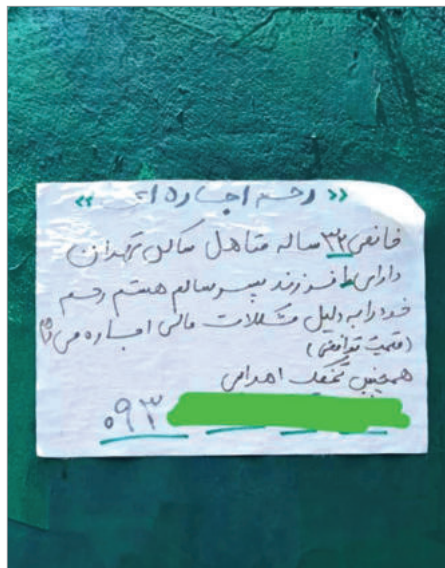 «رحم اجاره ای»
خانمی ۳۲ ساله متاهل ساکن تهران
دارای فرزند پسر سالم هستم رحم
خود را به دلیل مشکلات مالی اجاره می
(قیمت توافقی)
همچنین تخمک اهدایی
۰۹۳